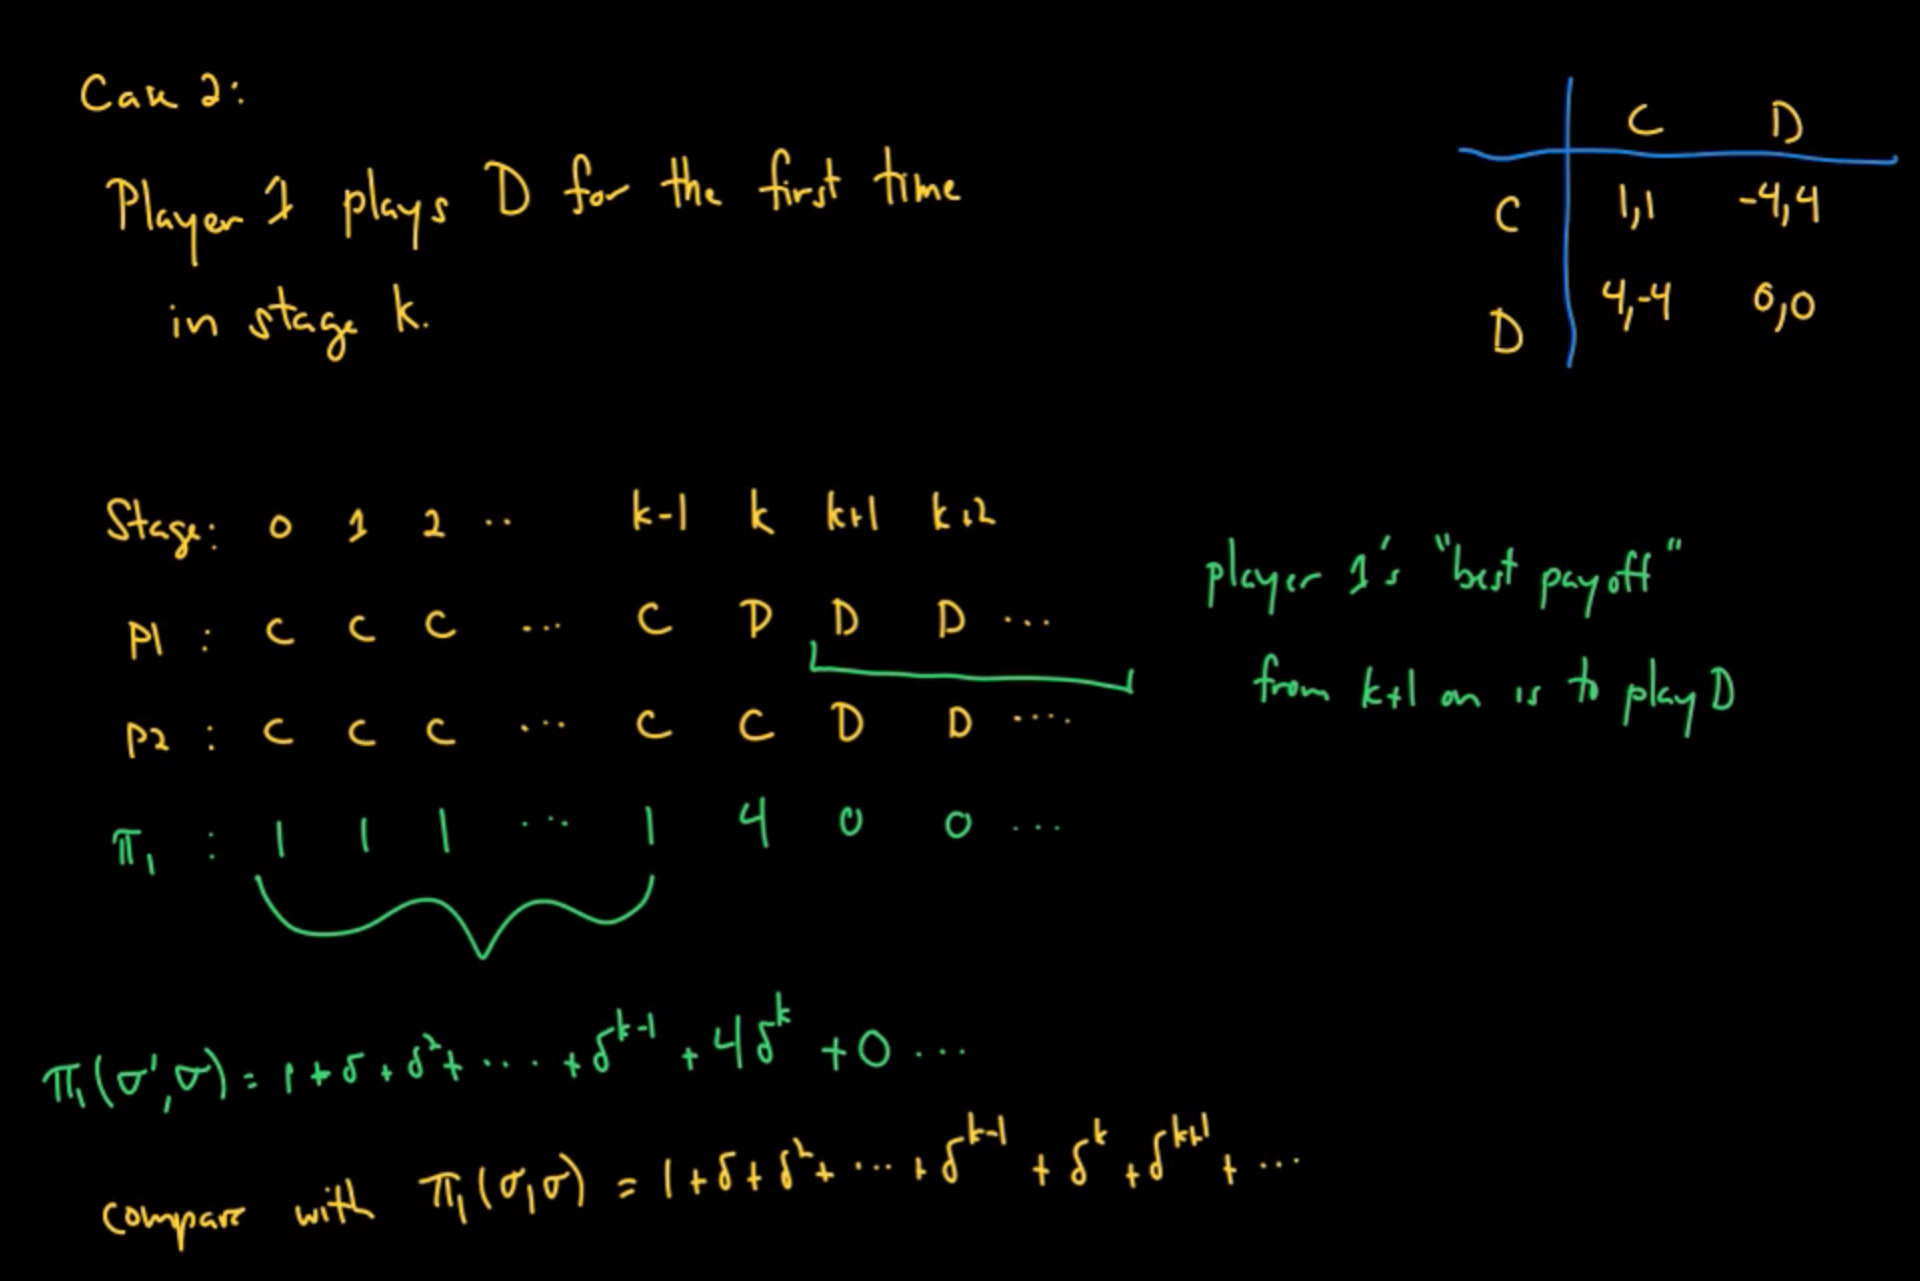 Case 2:
Player 1 plays D for the first time
in stage k.
C D
C 1,1 -4,4
D 4,-4 0,0
Stage: 0 1 2 .. k-1 k k+1 k+2
P1 : C C C ... C D D D ...
P2 : C C C ... C C D D ....
π₁ : 1 1 1 ... 1 4 0 0 ...
player 1's "best payoff"
from k+1 on is to play D
π₁(σ',σ) = 1 + δ + δ² + .... + δ^(k-1) + 4δ^k + 0 ...
compare with π₁(σ,σ) = 1 + δ + δ² + ... + δ^(k-1) + δ^k + δ^(k+1) + ...